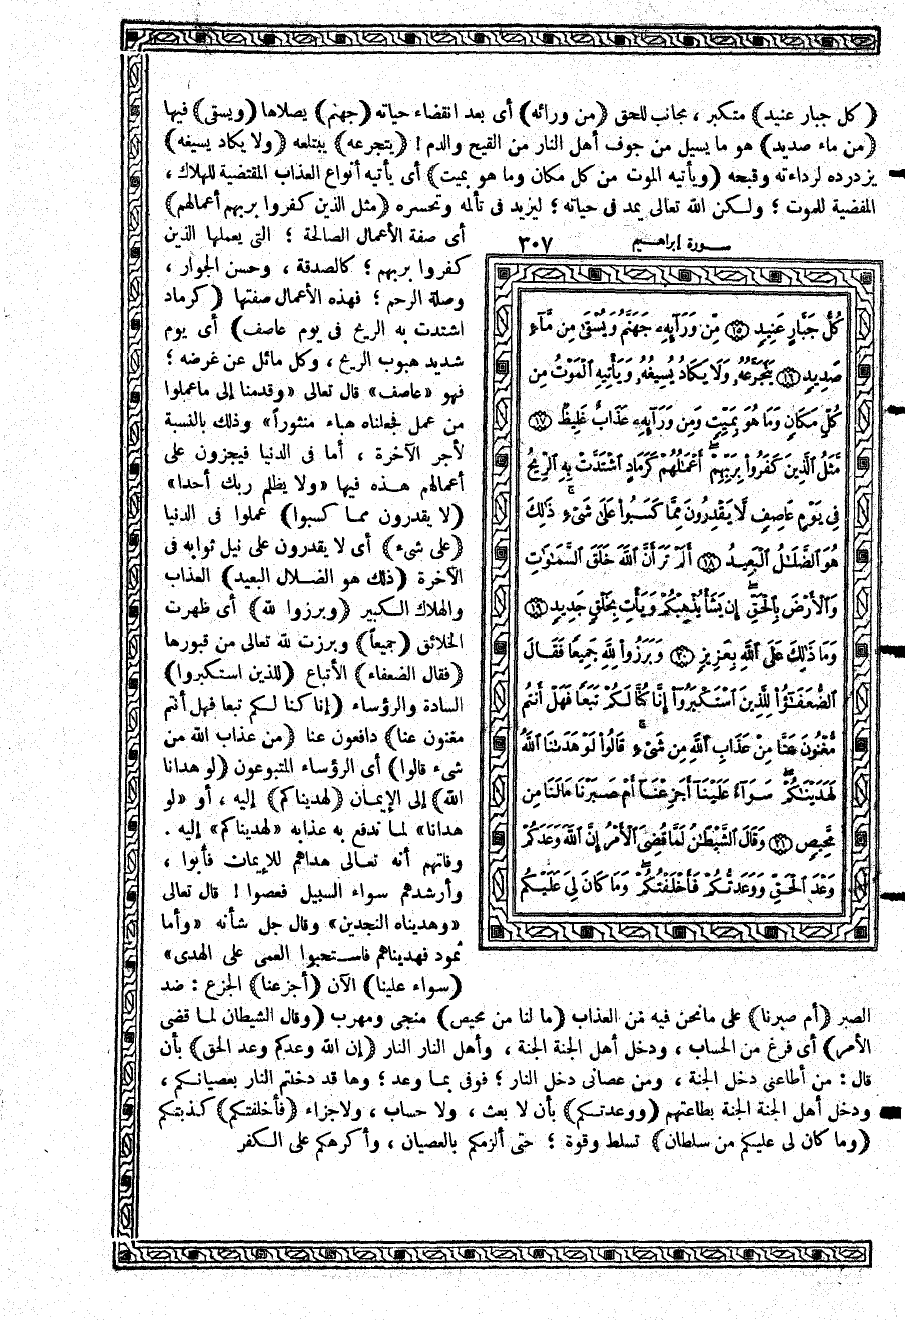 (كل جبار عنيد) متكبر ، مجانب للحق (من ورائه) أى بعد انقضاء حياته (جهنم) يصلاها (ويسقى) فيها
(من ماء صديد) هو ما يسيل من جوف أهل النار من القيح والدم ! (يتجرعه) يبتلعه (ولا يكاد يسيغه)
يزدرده لرداءته وقبحه (ويأتيه الموت من كل مكان وما هو بميت) أى يأتيه أنواع العذاب المقتضية للهلاك ،
المفضية للموت ؛ ولكن الله تعالى يمد فى حياته ؛ ليزيد فى تألمه وتحسره (مثل الذين كفروا بربهم أعمالهم)
أى صفة الأعمال الصالحة ؛ التى يعملها الذين
كفروا بربهم ؛ كالصدقة ، وحسن الجوار ،
وصلة الرحم ؛ فهذه الأعمال صفتها (كرماد
اشتدت به الريح فى يوم عاصف) أى يوم
شديد هبوب الريح ، وكل مائل عن غرضه ؛
فهو «عاصف» قال تعالى «وقدمنا إلى ماعملوا
من عمل فجعلناه هباء منثوراً» وذلك بالنسبة
لأجر الآخرة ، أما فى الدنيا فيجزون على
أعمالهم هذه فيها «ولا يظلم ربك أحدا»
(لا يقدرون مما كسبوا) عملوا فى الدنيا
(على شىء) أى لا يقدرون على نيل ثوابه فى
الآخرة (ذلك هو الضلال البعيد) العذاب
والهلاك الكبير (وبرزوا لله) أى ظهرت
الخلائق (جميعاً) وبرزت لله تعالى من قبورها
(فقال الضعفاء) الأتباع (للذين استكبروا)
السادة والرؤساء (إنا كنا لكم تبعا فهل أنتم
مغنون عنا) دافعون عنا (من عذاب الله من
شىء قالوا) أى الرؤساء المتبوعون (لو هدانا
الله) إلى الإيمان (لهديناكم) إليه ، أو «لو
هدانا» لما ندفع به عذابه «لهديناكم» إليه .
وفاتهم أنه تعالى هداهم للإيمان فأبوا ،
وأرشدهم سواء السبيل فعصوا ! قال تعالى
«وهديناه النجدين» وقال جل شأنه «وأما
ثمود فهديناهم فاستحبوا العمى على الهدى»
(سواء علينا) الآن (أجزعنا) الجزع : ضد
سورة إبراهيم ٣٠٧
كُلُّ جَبَّارٍ عَنِيدٍ ⑮ مِّن وَرَآئِهِۦ جَهَنَّمُ وَيُسْقَىٰ مِن مَّآءٍ
صَدِيدٍ ⑯ يَتَجَرَّعُهُۥ وَلَا يَكَادُ يُسِيغُهُۥ وَيَأْتِيهِ ٱلْمَوْتُ مِن
كُلِّ مَكَانٍ وَمَا هُوَ بِمَيِّتٍ وَمِن وَرَآئِهِۦ عَذَابٌ غَلِيظٌ ⑰
مَّثَلُ ٱلَّذِينَ كَفَرُوا۟ بِرَبِّهِمْ ۖ أَعْمَـٰلُهُمْ كَرَمَادٍ ٱشْتَدَّتْ بِهِ ٱلرِّيحُ
فِى يَوْمٍ عَاصِفٍ لَّا يَقْدِرُونَ مِمَّا كَسَبُوا۟ عَلَىٰ شَىْءٍ ۚ ذَٰلِكَ
هُوَ ٱلضَّلَـٰلُ ٱلْبَعِيدُ ⑱ أَلَمْ تَرَ أَنَّ ٱللَّهَ خَلَقَ ٱلسَّمَـٰوَٰتِ
وَٱلْأَرْضَ بِٱلْحَقِّ ۚ إِن يَشَأْ يُذْهِبْكُمْ وَيَأْتِ بِخَلْقٍ جَدِيدٍ ⑲
وَمَا ذَٰلِكَ عَلَى ٱللَّهِ بِعَزِيزٍ ⑳ وَبَرَزُوا۟ لِلَّهِ جَمِيعًا فَقَالَ
ٱلضُّعَفَـٰٓؤُا۟ لِلَّذِينَ ٱسْتَكْبَرُوٓا۟ إِنَّا كُنَّا لَكُمْ تَبَعًا فَهَلْ أَنتُم
مُّغْنُونَ عَنَّا مِنْ عَذَابِ ٱللَّهِ مِن شَىْءٍ ۚ قَالُوا۟ لَوْ هَدَىٰنَا ٱللَّهُ
لَهَدَيْنَـٰكُمْ ۖ سَوَآءٌ عَلَيْنَآ أَجَزِعْنَآ أَمْ صَبَرْنَا مَا لَنَا مِن
مَّحِيصٍ ㉑ وَقَالَ ٱلشَّيْطَـٰنُ لَمَّا قُضِىَ ٱلْأَمْرُ إِنَّ ٱللَّهَ وَعَدَكُمْ
وَعْدَ ٱلْحَقِّ وَوَعَدتُّكُمْ فَأَخْلَفْتُكُمْ ۖ وَمَا كَانَ لِىَ عَلَيْكُم
الصبر (أم صبرنا) على مانحن فيه من العذاب (ما لنا من محيص) منجى ومهرب (وقال الشيطان لما قضى
الأمر) أى فرغ من الحساب ، ودخل أهل الجنة الجنة ، وأهل النار النار (إن الله وعدكم وعد الحق) بأن
قال : من أطاعنى دخل الجنة ، ومن عصانى دخل النار ؛ فوفى بما وعد ؛ وها قد دخلتم النار بعصيانكم ،
ودخل أهل الجنة الجنة بطاعتهم (ووعدتكم) بأن لا بعث ، ولا حساب ، ولاجزاء (فأخلفتكم) كذبتكم
(وما كان لى عليكم من سلطان) تسلط وقوة ؛ حتى ألزمكم بالعصيان ، وأكرهكم على الكفر